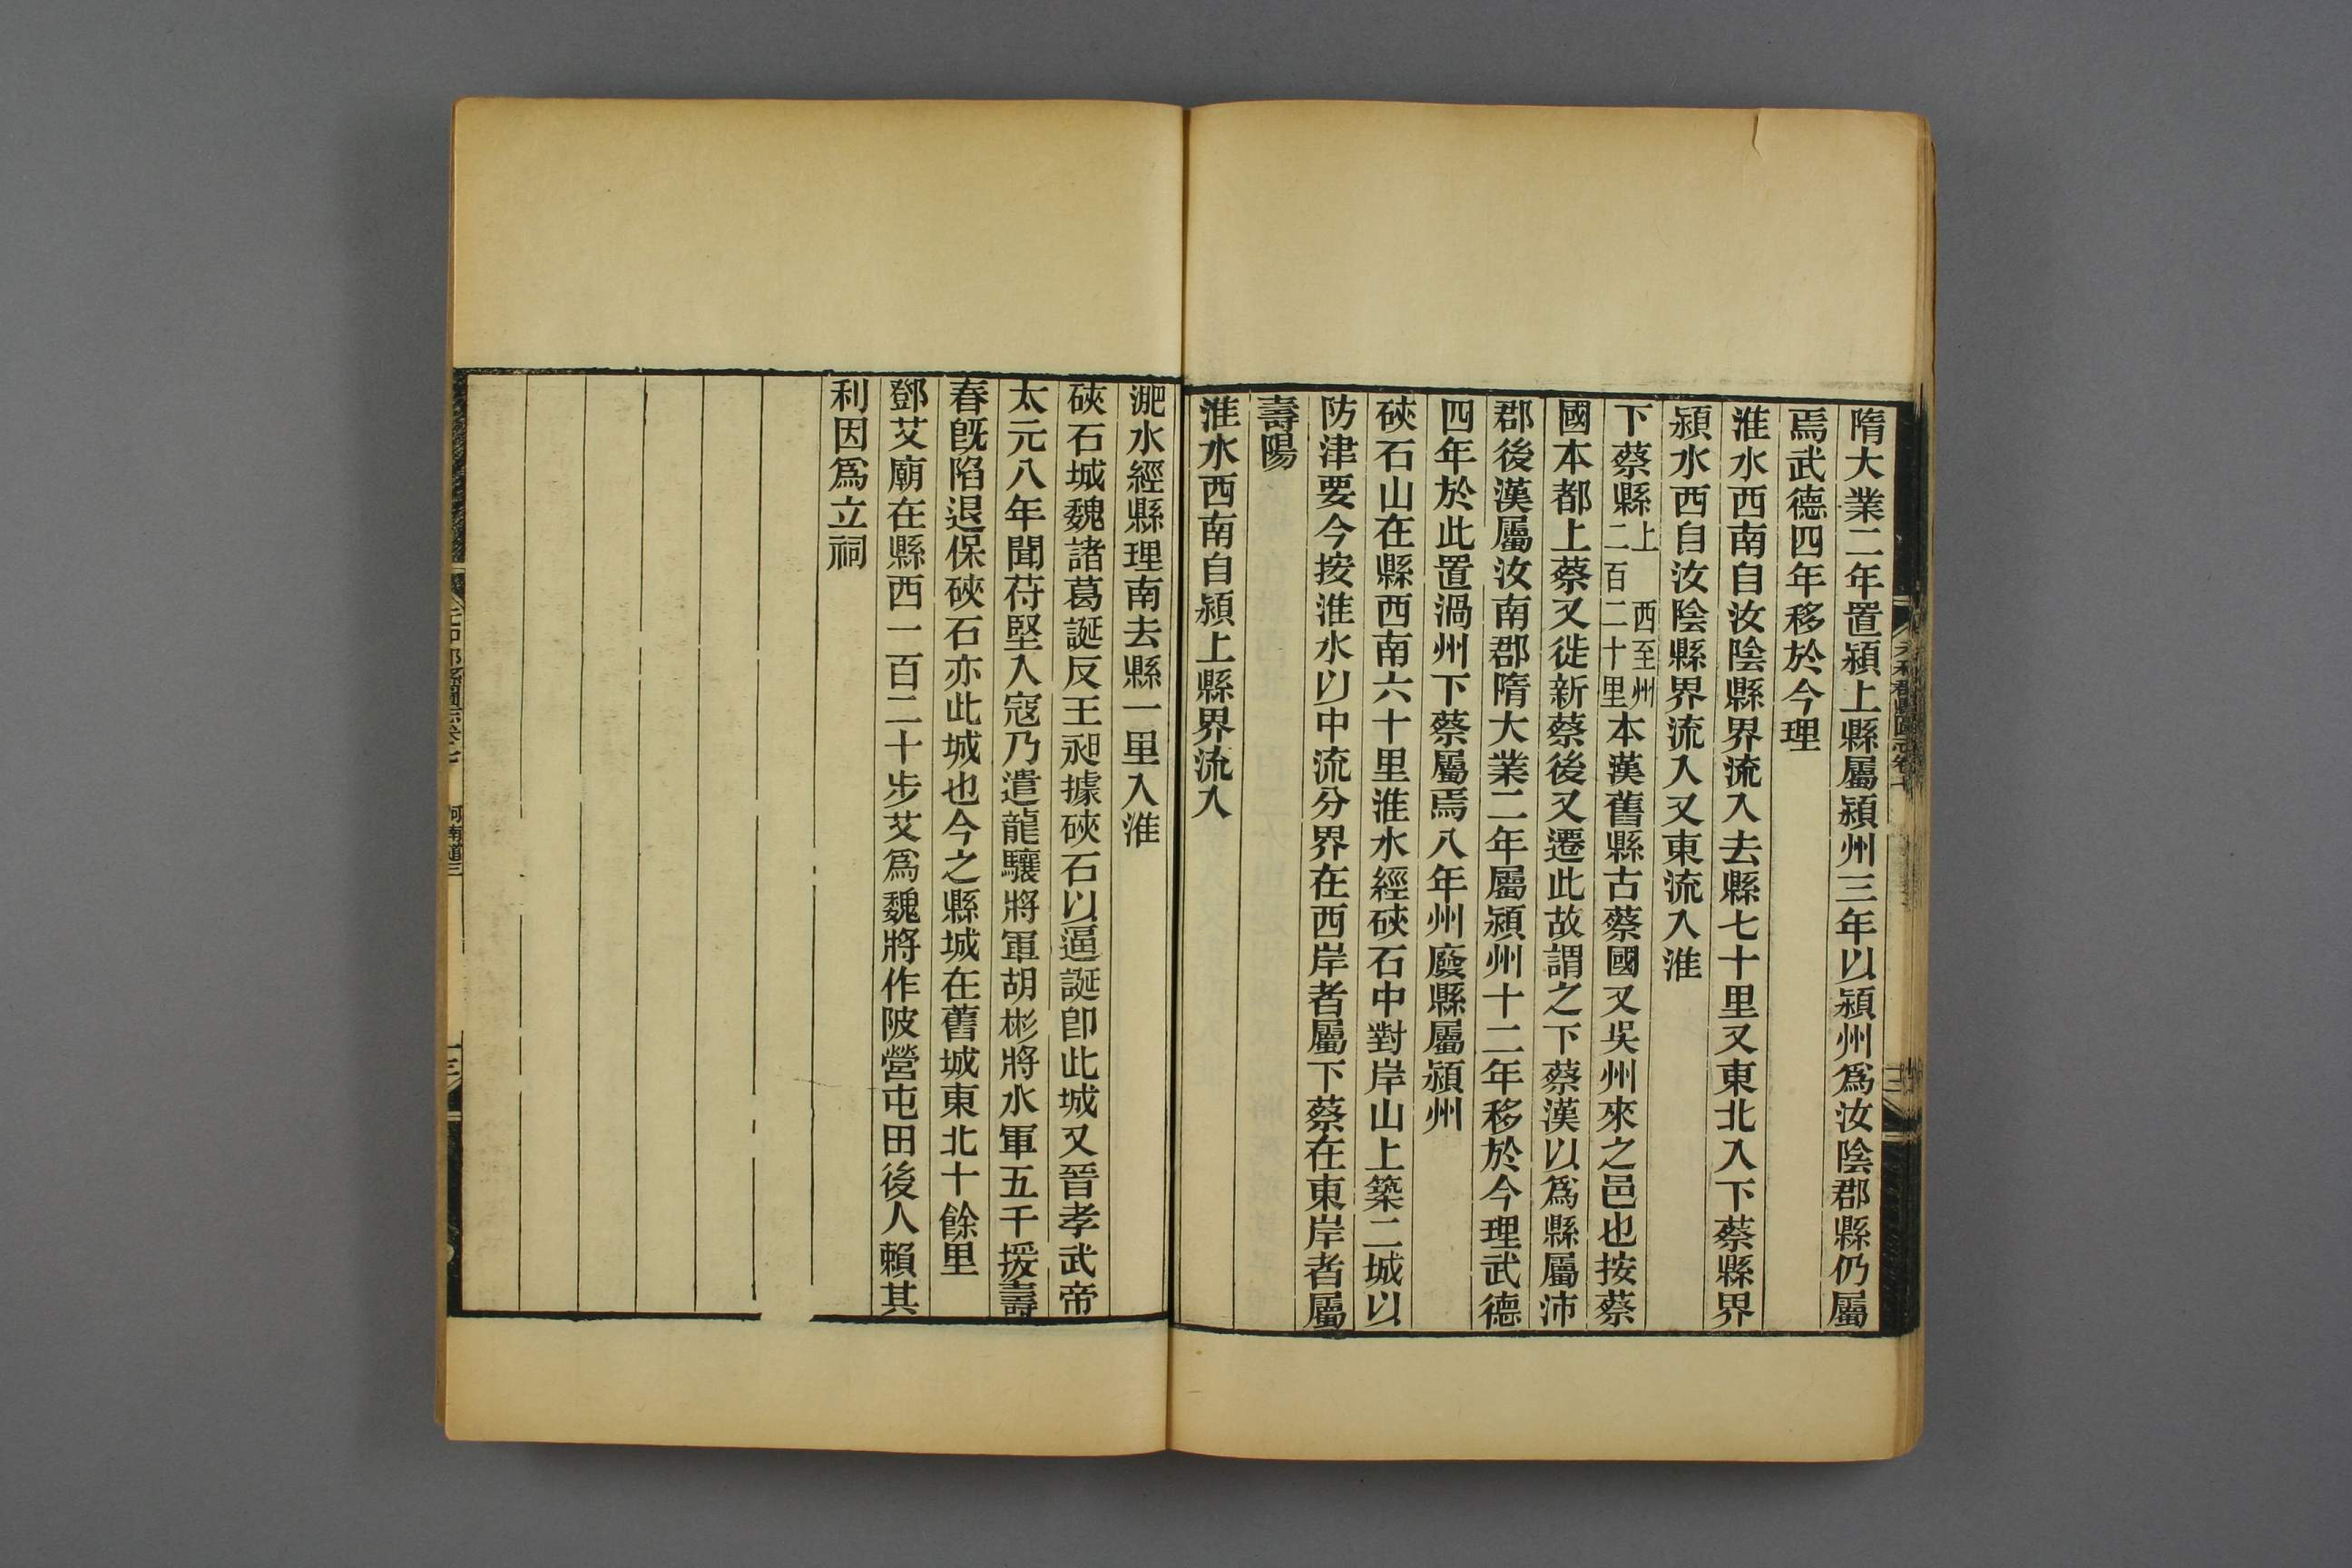 隋大業二年置潁上縣屬潁州三年以潁州爲汝陰郡縣仍屬
焉武德四年移於今理
淮水西南自汝陰縣界流入去縣七十里又東北入下蔡縣界
潁水西自汝陰縣界流入又東流入淮
下蔡縣上西至州二百二十里本漢舊縣古蔡國又吳州來之邑也按蔡
國本都上蔡又徙新蔡後又遷此故謂之下蔡漢以爲縣屬沛
郡後漢屬汝南郡隋大業二年屬潁州十二年移於今理武德
四年於此置渦州下蔡屬焉八年州廢縣屬潁州
硤石山在縣西南六十里淮水經硤石中對岸山上築二城以
防津要今按淮水以中流分界在西岸者屬下蔡在東岸者屬
壽陽
淮水西南自潁上縣界流入
淝水經縣理南去縣一里入淮
硤石城魏諸葛誕反王昶據硤石以逼誕卽此城又晉孝武帝
太元八年聞苻堅入寇乃遣龍驤將軍胡彬將水軍五千援壽
春旣陷退保硤石亦此城也今之縣城在舊城東北十餘里
鄧艾廟在縣西一百二十步艾爲魏將作陂營屯田後人賴其
利因爲立祠
河南道三